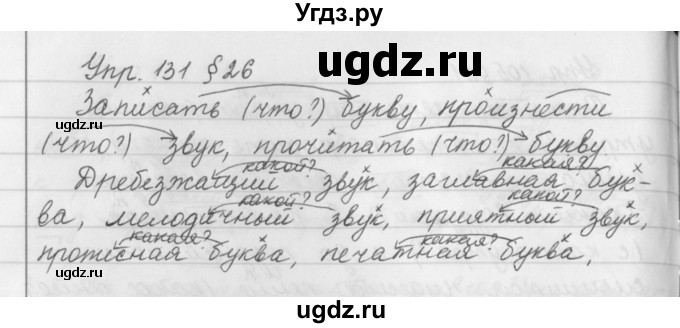 Угдз.ру
Упр. 131 § 26
ugdz.ru
Записать (что?) букву, произнести
ugdz.ru
(что?) звук, прочитать (что?) букву
какой? какая?
Дребезжащий звук, заглавная бук-
какой? какой?
ва, мелодичный звук, приятный звук,
какая? какая?
прописная буква, печатная буква,
ugdz.ru
ugdz.ru